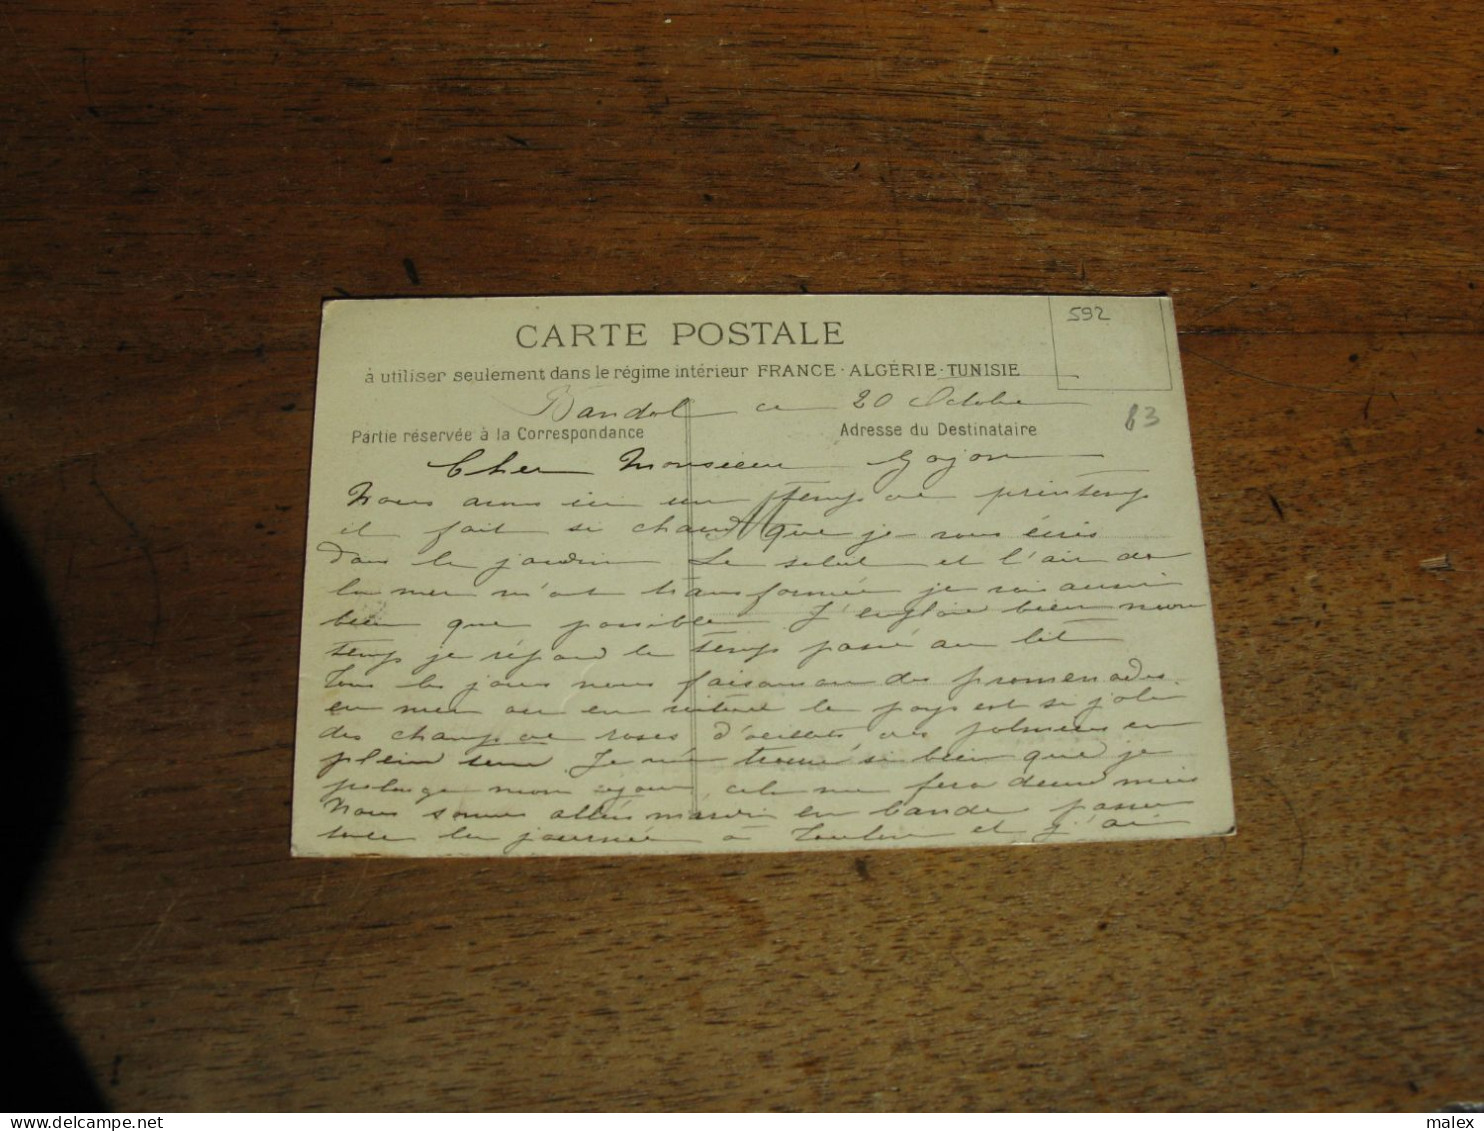 592
CARTE POSTALE
à utiliser seulement dans le régime intérieur FRANCE - ALGÉRIE - TUNISIE
Bandol ce 20 Octobre
83
Partie réservée à la Correspondance
Adresse du Destinataire
Cher Monsieur Gojon
Nous avons ici un temps de printemps
il fait si chaud que je vous écris
dans le jardin Le soleil et l'air de
la mer m'ont transformée je suis aussi
bien que possible J' bien mon
temps je le temps passé au lit
Tous les jours nous faisons des promenades
en mer ou en voiture le pays est si joli
des champs de roses d'oeillets des palmiers en
plein Je me trouve si bien que je
prolonge mon séjour, cela me fera deux mois
Nous sommes allés mardi en bande passer
toute la journée à Toulon et j'ai
malex
delcampe.net